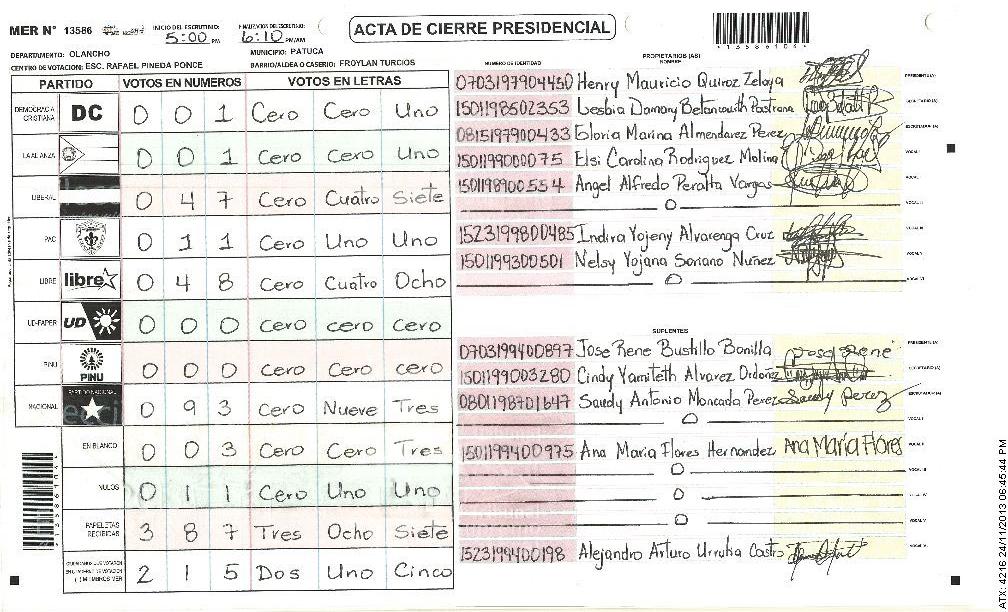 MER N° 13586
INICIO DEL ESCRUTINIO: 5:00 PM
FINALIZACION DEL ESCRUTINIO: 6:10 PM/AM
ACTA DE CIERRE PRESIDENCIAL
DEPARTAMENTO: OLANCHO
MUNICIPIO: PATUCA
CENTRO DE VOTACION: ESC. RAFAEL PINEDA PONCE
BARRIO/ALDEA O CASERIO: FROYLAN TURCIOS
PARTIDO VOTOS EN NUMEROS VOTOS EN LETRAS
DEMOCRACIA CRISTIANA DC 0 0 1 Cero Cero Uno
LA ALIANZA 0 0 1 Cero Cero Uno
LIBERAL 0 4 7 Cero Cuatro Siete
PAC 0 1 1 Cero Uno Uno
LIBRE libre 0 4 8 Cero Cuatro Ocho
UD-FAPER UD 0 0 0 Cero cero Cero
PINU PINU 0 0 0 Cero Cero cero
NACIONAL PARTIDO NACIONAL 0 9 3 Cero Nueve Tres
EN BLANCO 0 0 3 Cero Cero Tres
NULOS 0 1 1 Cero Uno Uno
PAPELETAS RECIBIDAS 3 8 7 Tres Ocho Siete
2 1 5 Dos Uno Cinco
NUMERO DE IDENTIDAD PROPIETARIOS (AS) NOMBRE
0703197904450 Henry Mauricio Quiroz Zelaya PRESIDENTE(A)
1501198602353 Lesbia Damany Betancourth Pastrana SECRETARIO (A)
0815197900433 Gloria Marina Almendarez Perez ESCRUTADOR (A)
1501199000075 Elsi Carolina Rodriguez Molina VOCAL I
1501198900554 Angel Alfredo Peralta Vargas
O
1523199800485 Indira Yojeny Alvarenga Cruz
1501199300501 Nelsy Yojana Soriano Nuñez VOCAL V
O VOCAL VI
SUPLENTES
0703199400897 Jose Rene Bustillo Bonilla Jose Rene PRESIDENTE (A)
1501199003280 Cindy Yamileth Alvarez Ordoñez SECRETARIO (A)
0801198701647 Saudy Antonio Moncada Perez Saudy perez ESCRUTADOR (A)
O VOCAL I
1501199400975 Ana Maria Flores Hernandez Ana María Flores VOCAL II
O VOCAL III
O VOCAL IV
O VOCAL V
1523199400198 Alejandro Arturo Urrutia Castro VOCAL VI
ATX: 4216 24/11/2013 06:45:44 PM